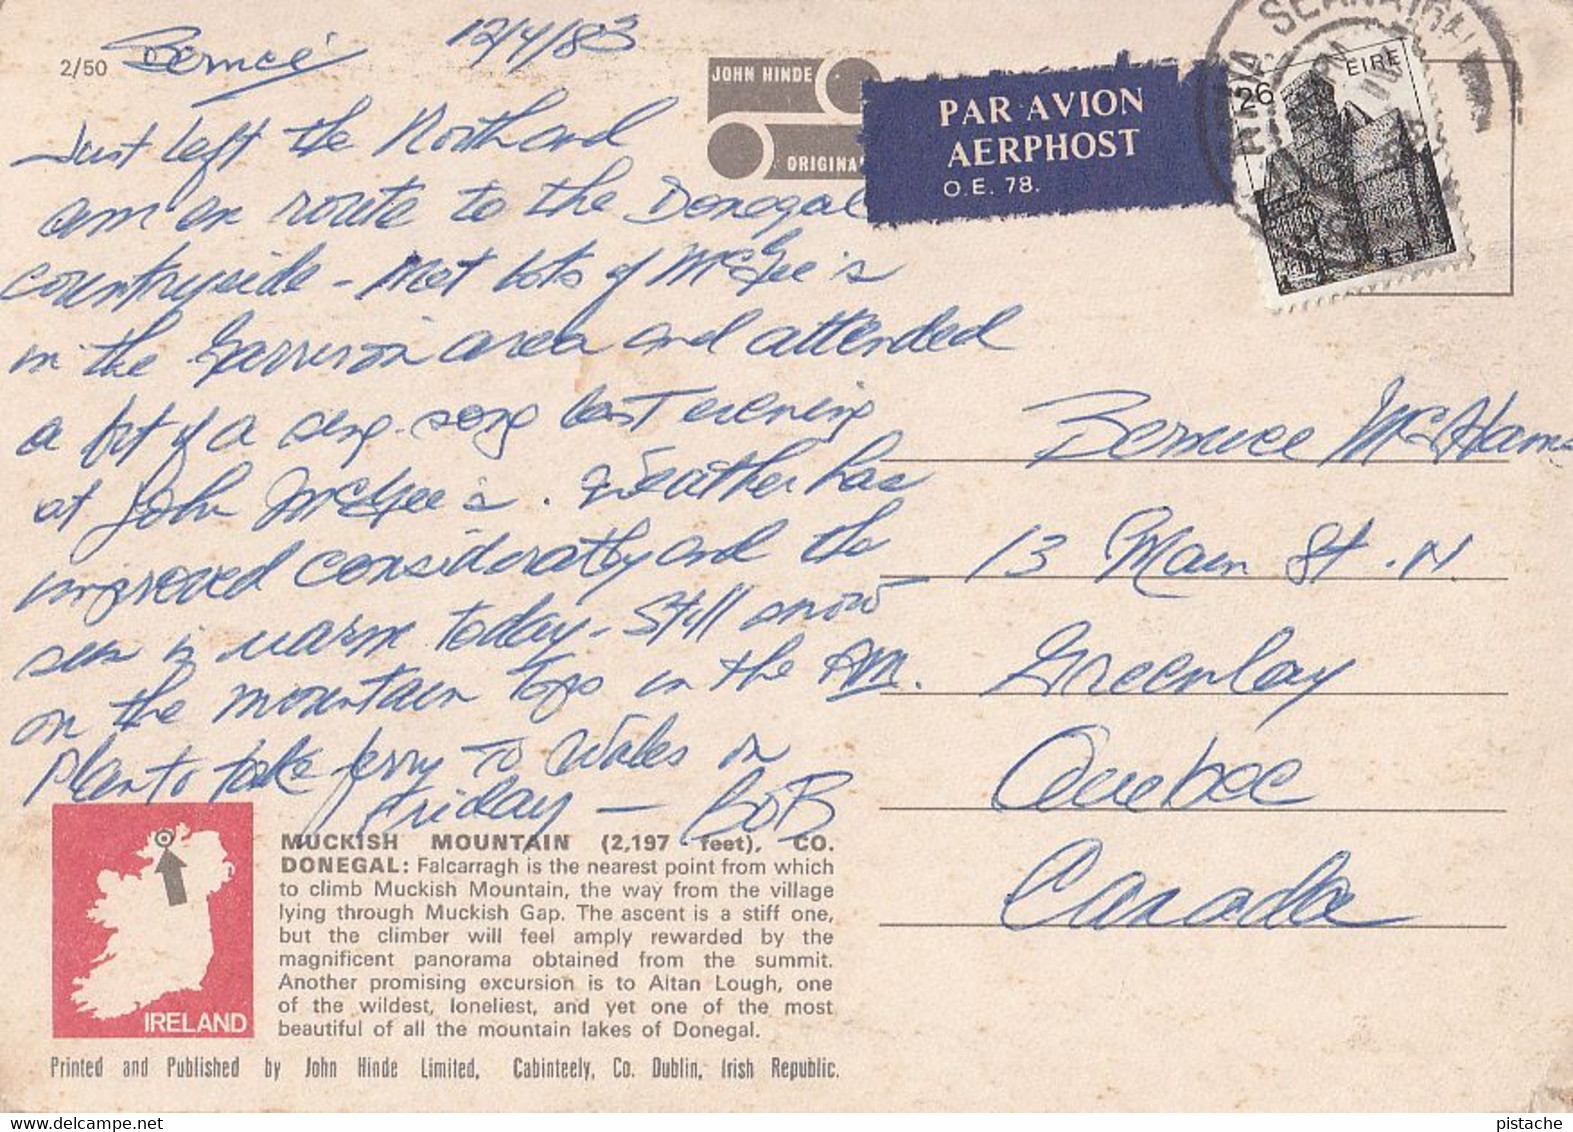 2/50
Bernice 12/4/83
Just left the North and
am en route to the Donegal
countryside - Met lots of McGee's
in the Garrison area and attended
a bit of a sing-song last evening
at John McGee's. Weather has
improved considerably and the
sun is warm today - Still snow
on the mountain tops in the AM.
Plan to take ferry to Wales on
Friday — BOB
JOHN HINDE
ORIGINAL
PAR AVION
AERPHOST
O.E. 78.
26
EIRE
Bernice McHam
13 Main St. N.
Greenlay
Quebec
Canada
IRELAND
MUCKISH MOUNTAIN (2,197 feet), CO.
DONEGAL: Falcarragh is the nearest point from which
to climb Muckish Mountain, the way from the village
lying through Muckish Gap. The ascent is a stiff one,
but the climber will feel amply rewarded by the
magnificent panorama obtained from the summit.
Another promising excursion is to Altan Lough, one
of the wildest, loneliest, and yet one of the most
beautiful of all the mountain lakes of Donegal.
Printed and Published by John Hinde Limited, Cabinteely, Co. Dublin, Irish Republic.
pistache